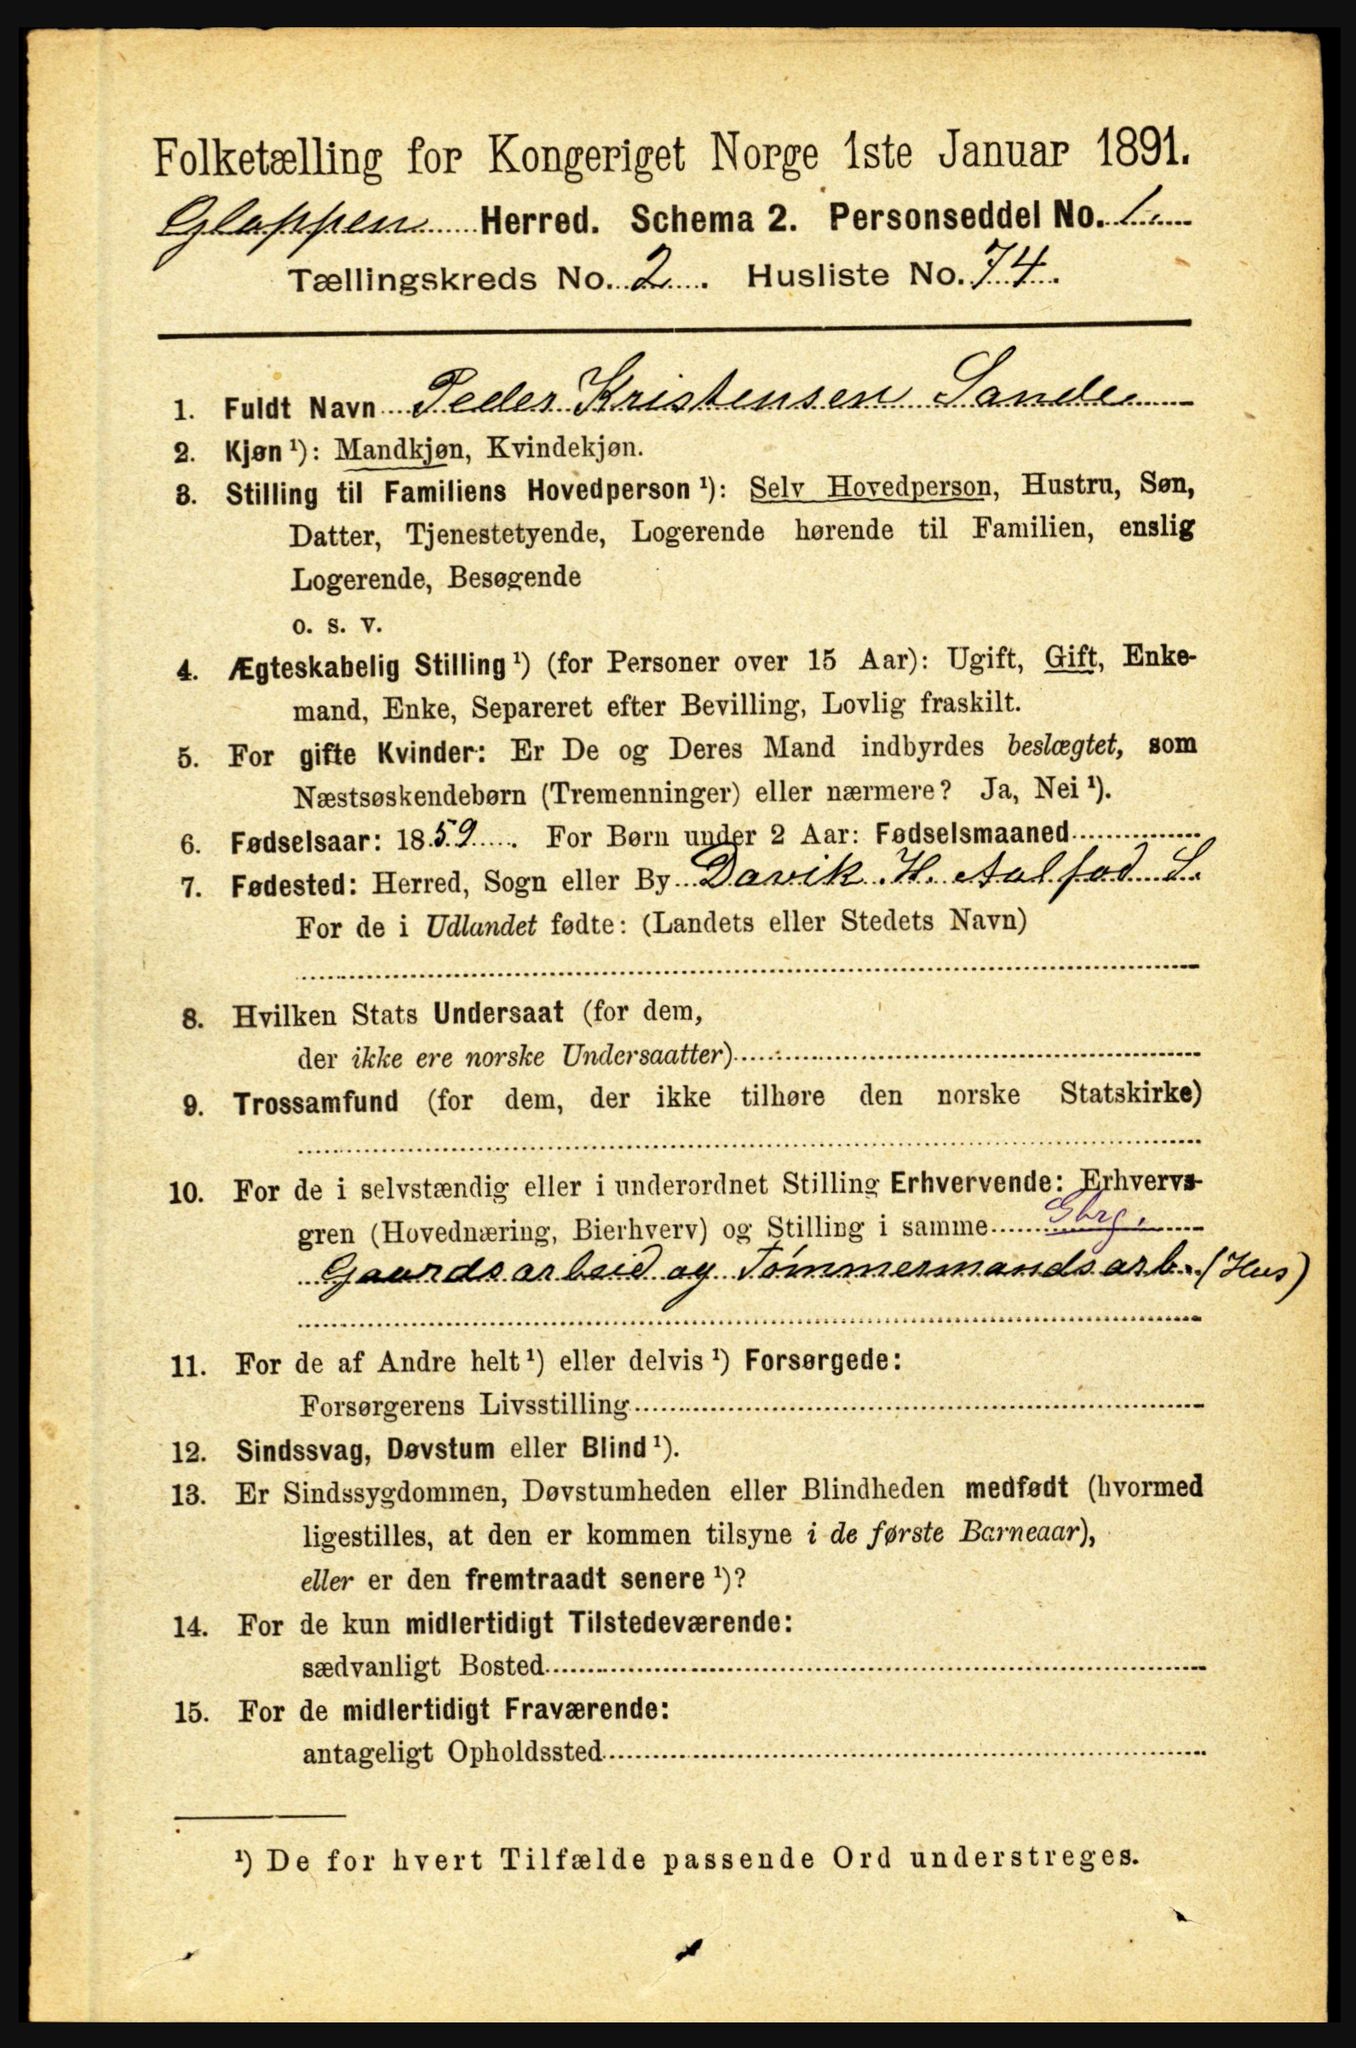 Folketælling for Kongeriget Norge 1ste Januar 1891.
Gloppen Herred. Schema 2. Personseddel No. 1.
Tællingskreds No. 2. Husliste No. 74.
1. Fuldt Navn Peder Kristensen Sande
2. Kjøn ¹): Mandkjøn, Kvindekjøn.
3. Stilling til Familiens Hovedperson ¹): Selv Hovedperson, Hustru, Søn,
Datter, Tjenestetyende, Logerende hørende til Familien, enslig
Logerende, Besøgende
o. s. v.
4. Ægteskabelig Stilling ¹) (for Personer over 15 Aar): Ugift, Gift, Enke-
mand, Enke, Separeret efter Bevilling, Lovlig fraskilt.
5. For gifte Kvinder: Er De og Deres Mand indbyrdes beslægtet, som
Næstsøskendebørn (Tremenninger) eller nærmere? Ja, Nei ¹).
6. Fødselsaar: 1859. For Børn under 2 Aar: Fødselsmaaned
7. Fødested: Herred, Sogn eller By Davik H. Aalfod S.
For de i Udlandet fødte: (Landets eller Stedets Navn)
8. Hvilken Stats Undersaat (for dem,
der ikke ere norske Undersaatter)
9. Trossamfund (for dem, der ikke tilhøre den norske Statskirke)
10. For de i selvstændig eller i underordnet Stilling Erhvervende: Erhvervs-
gren (Hovednæring, Bierhverv) og Stilling i samme Gbrg.
Gaardsarbeid og Tømmermandsarb. (Hus)
11. For de af Andre helt ¹) eller delvis ¹) Forsørgede:
Forsørgerens Livsstilling
12. Sindssvag, Døvstum eller Blind ¹).
13. Er Sindssygdommen, Døvstumheden eller Blindheden medfødt (hvormed
ligestilles, at den er kommen tilsyne i de første Barneaar),
eller er den fremtraadt senere ¹)?
14. For de kun midlertidigt Tilstedeværende:
sædvanligt Bosted
15. For de midlertidigt Fraværende:
antageligt Opholdssted
¹) De for hvert Tilfælde passende Ord understreges.